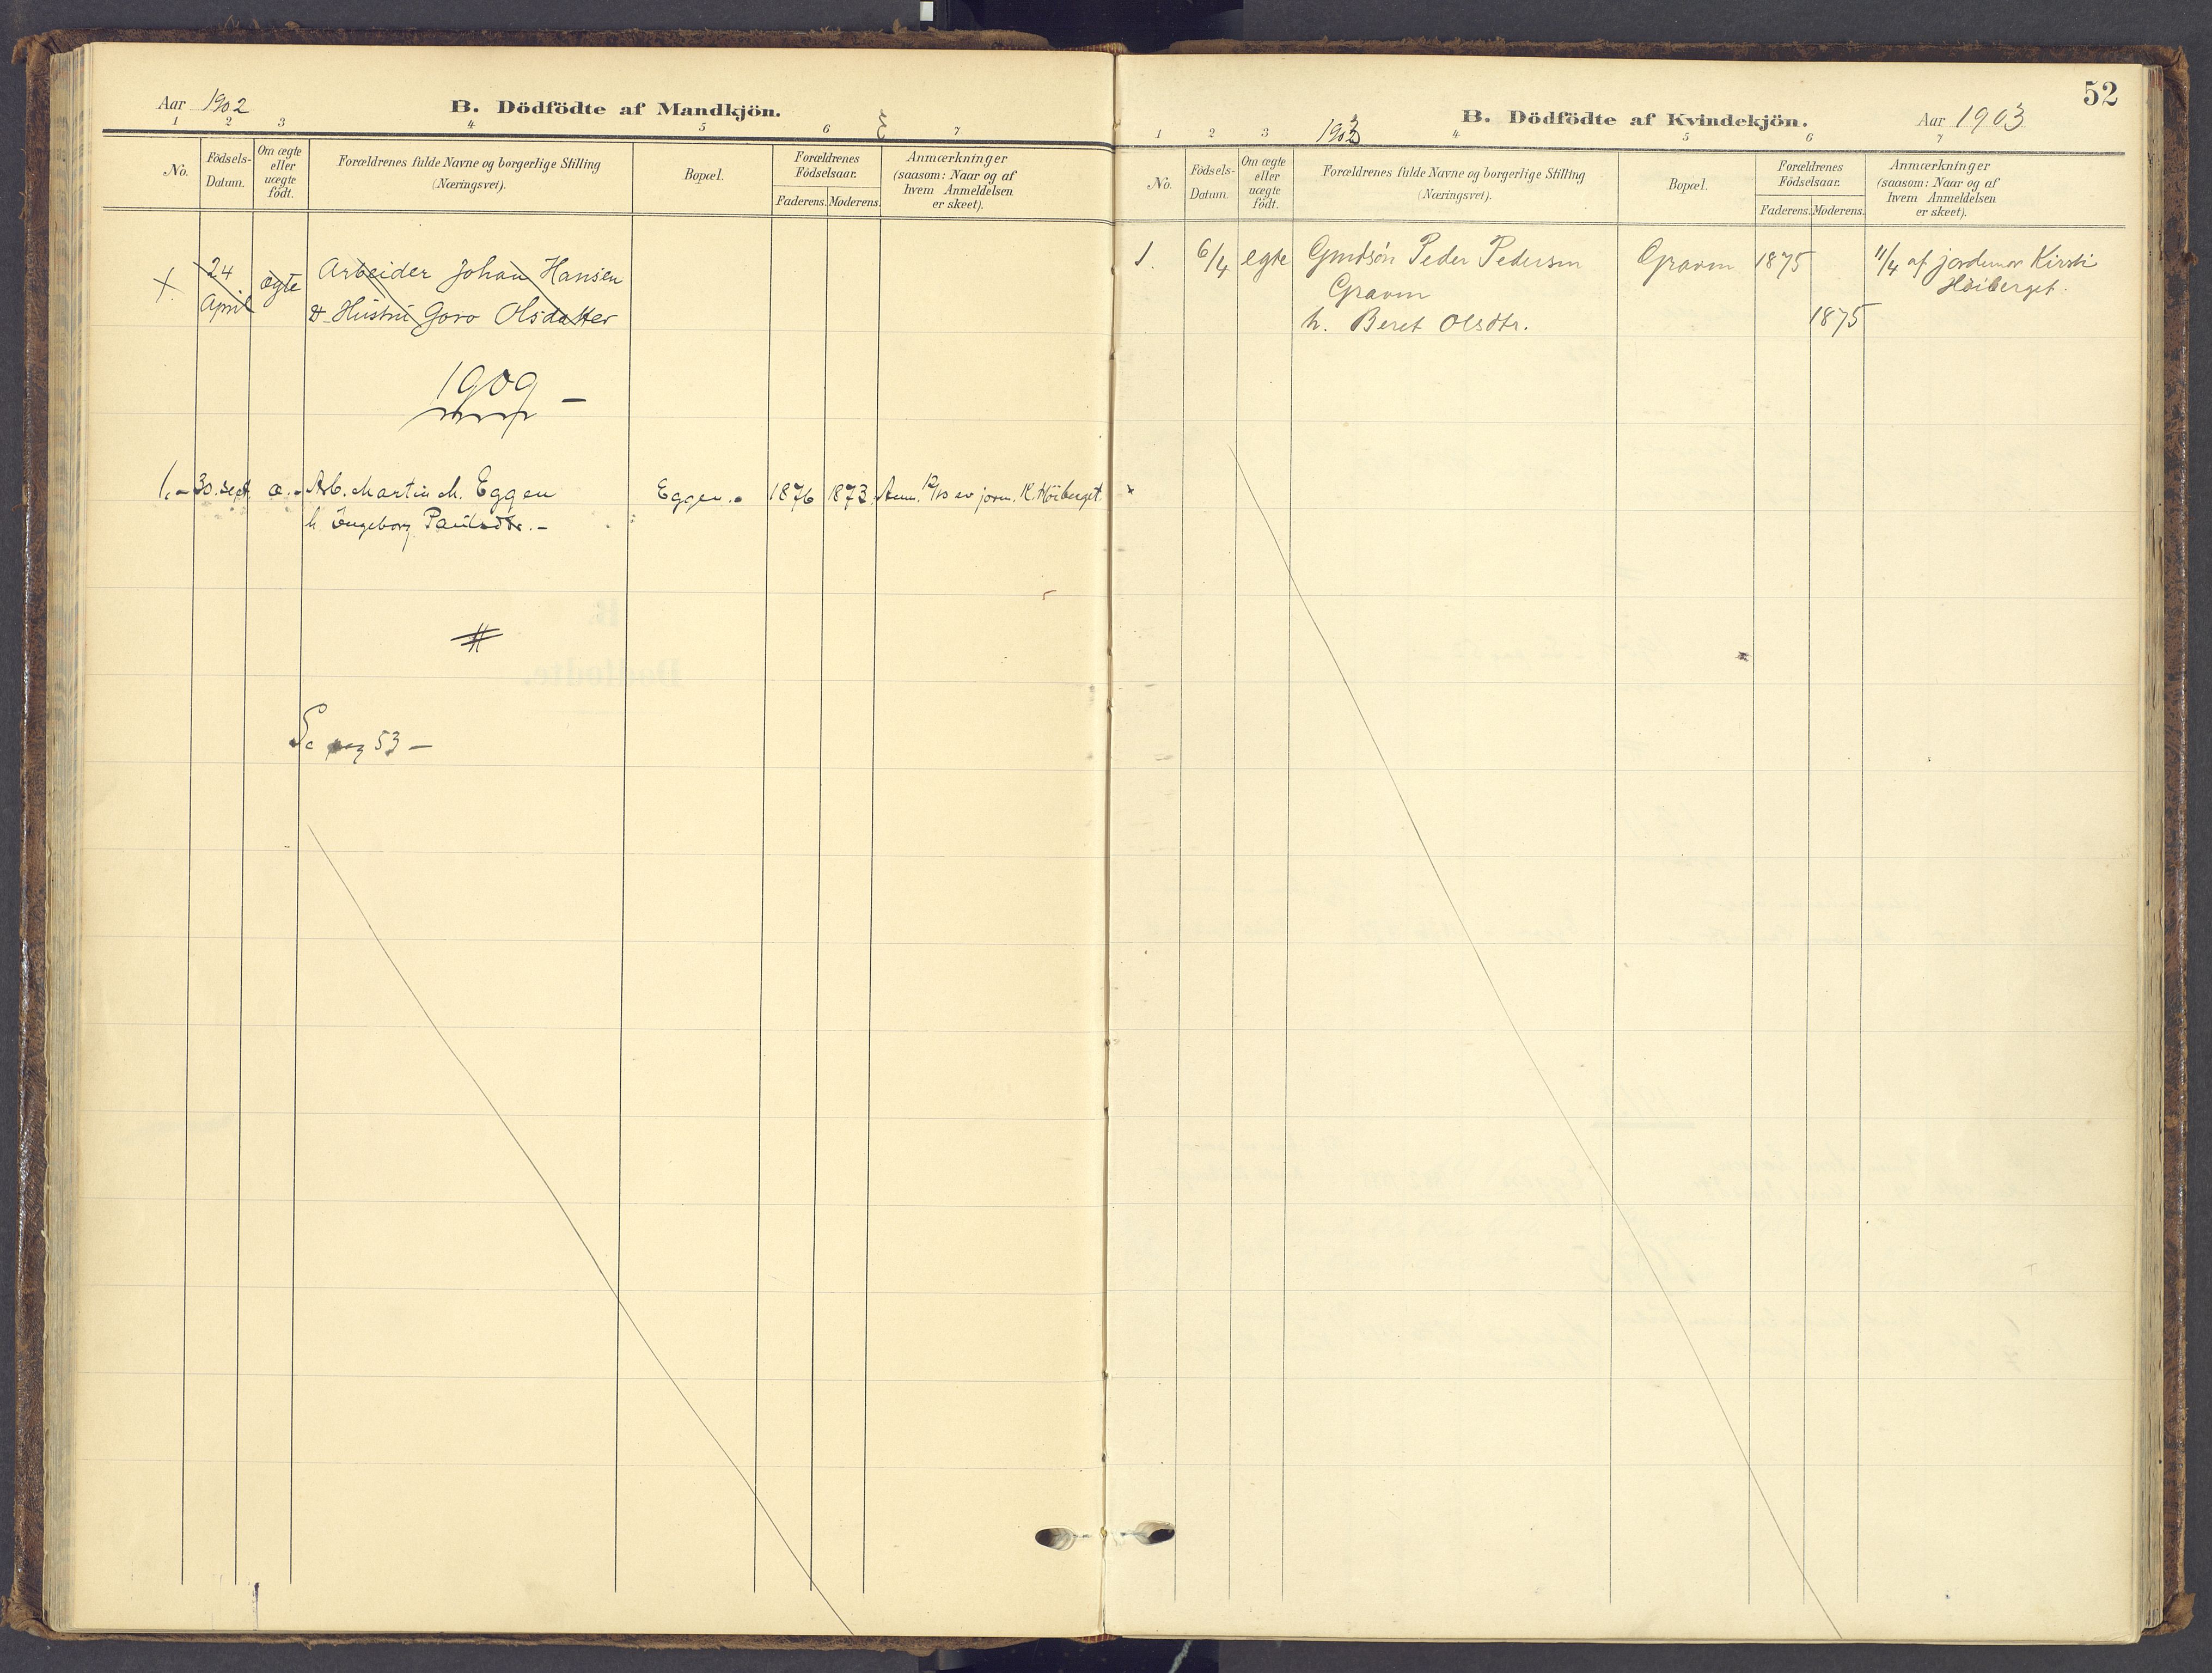 Aar 1902
B. Dödfödte af Mandkjön.
1 2 3 4 5 6 7
No.
Födsels-
Datum.
Om ægte
eller
uægte
födt.
Forældrenes fulde Navne og borgerlige Stilling
(Næringsvei).
Bopæl.
Forældrenes
Födselsaar.
Faderens. Moderens.
Anmærkninger
(saasom: Naar og af
hvem Anmeldelsen
er skeet).
1. 24 ægte Arbeider Johan Hansen
April & Hustru Goro Olsdatter
1909 —
1. - 30. sept. æ. - Arb. Martin M. Eggen Eggen. 1876 1873 Anm. 12/10 av jorm. K. Höiberget.
h. Ingeborg Paulsdtr. -
#
Se pag 53 —
52
B. Dödfödte af Kvindekjön.
Aar 1903
1 2 3 4 5 6 7
1903
No.
Födsels-
Datum.
Om ægte
eller
uægte
födt.
Forældrenes fulde Navne og borgerlige Stilling
(Næringsvei).
Bopæl.
Forældrenes
Födselsaar.
Faderens. Moderens.
Anmærkninger
(saasom: Naar og af
hvem Anmeldelsen
er skeet).
1. 6/4 egte Peder Pedersen Graven 1875 11/4 af jordemor Kirsti
Graven Höiberget.
h. Beret Olsdtr. 1875